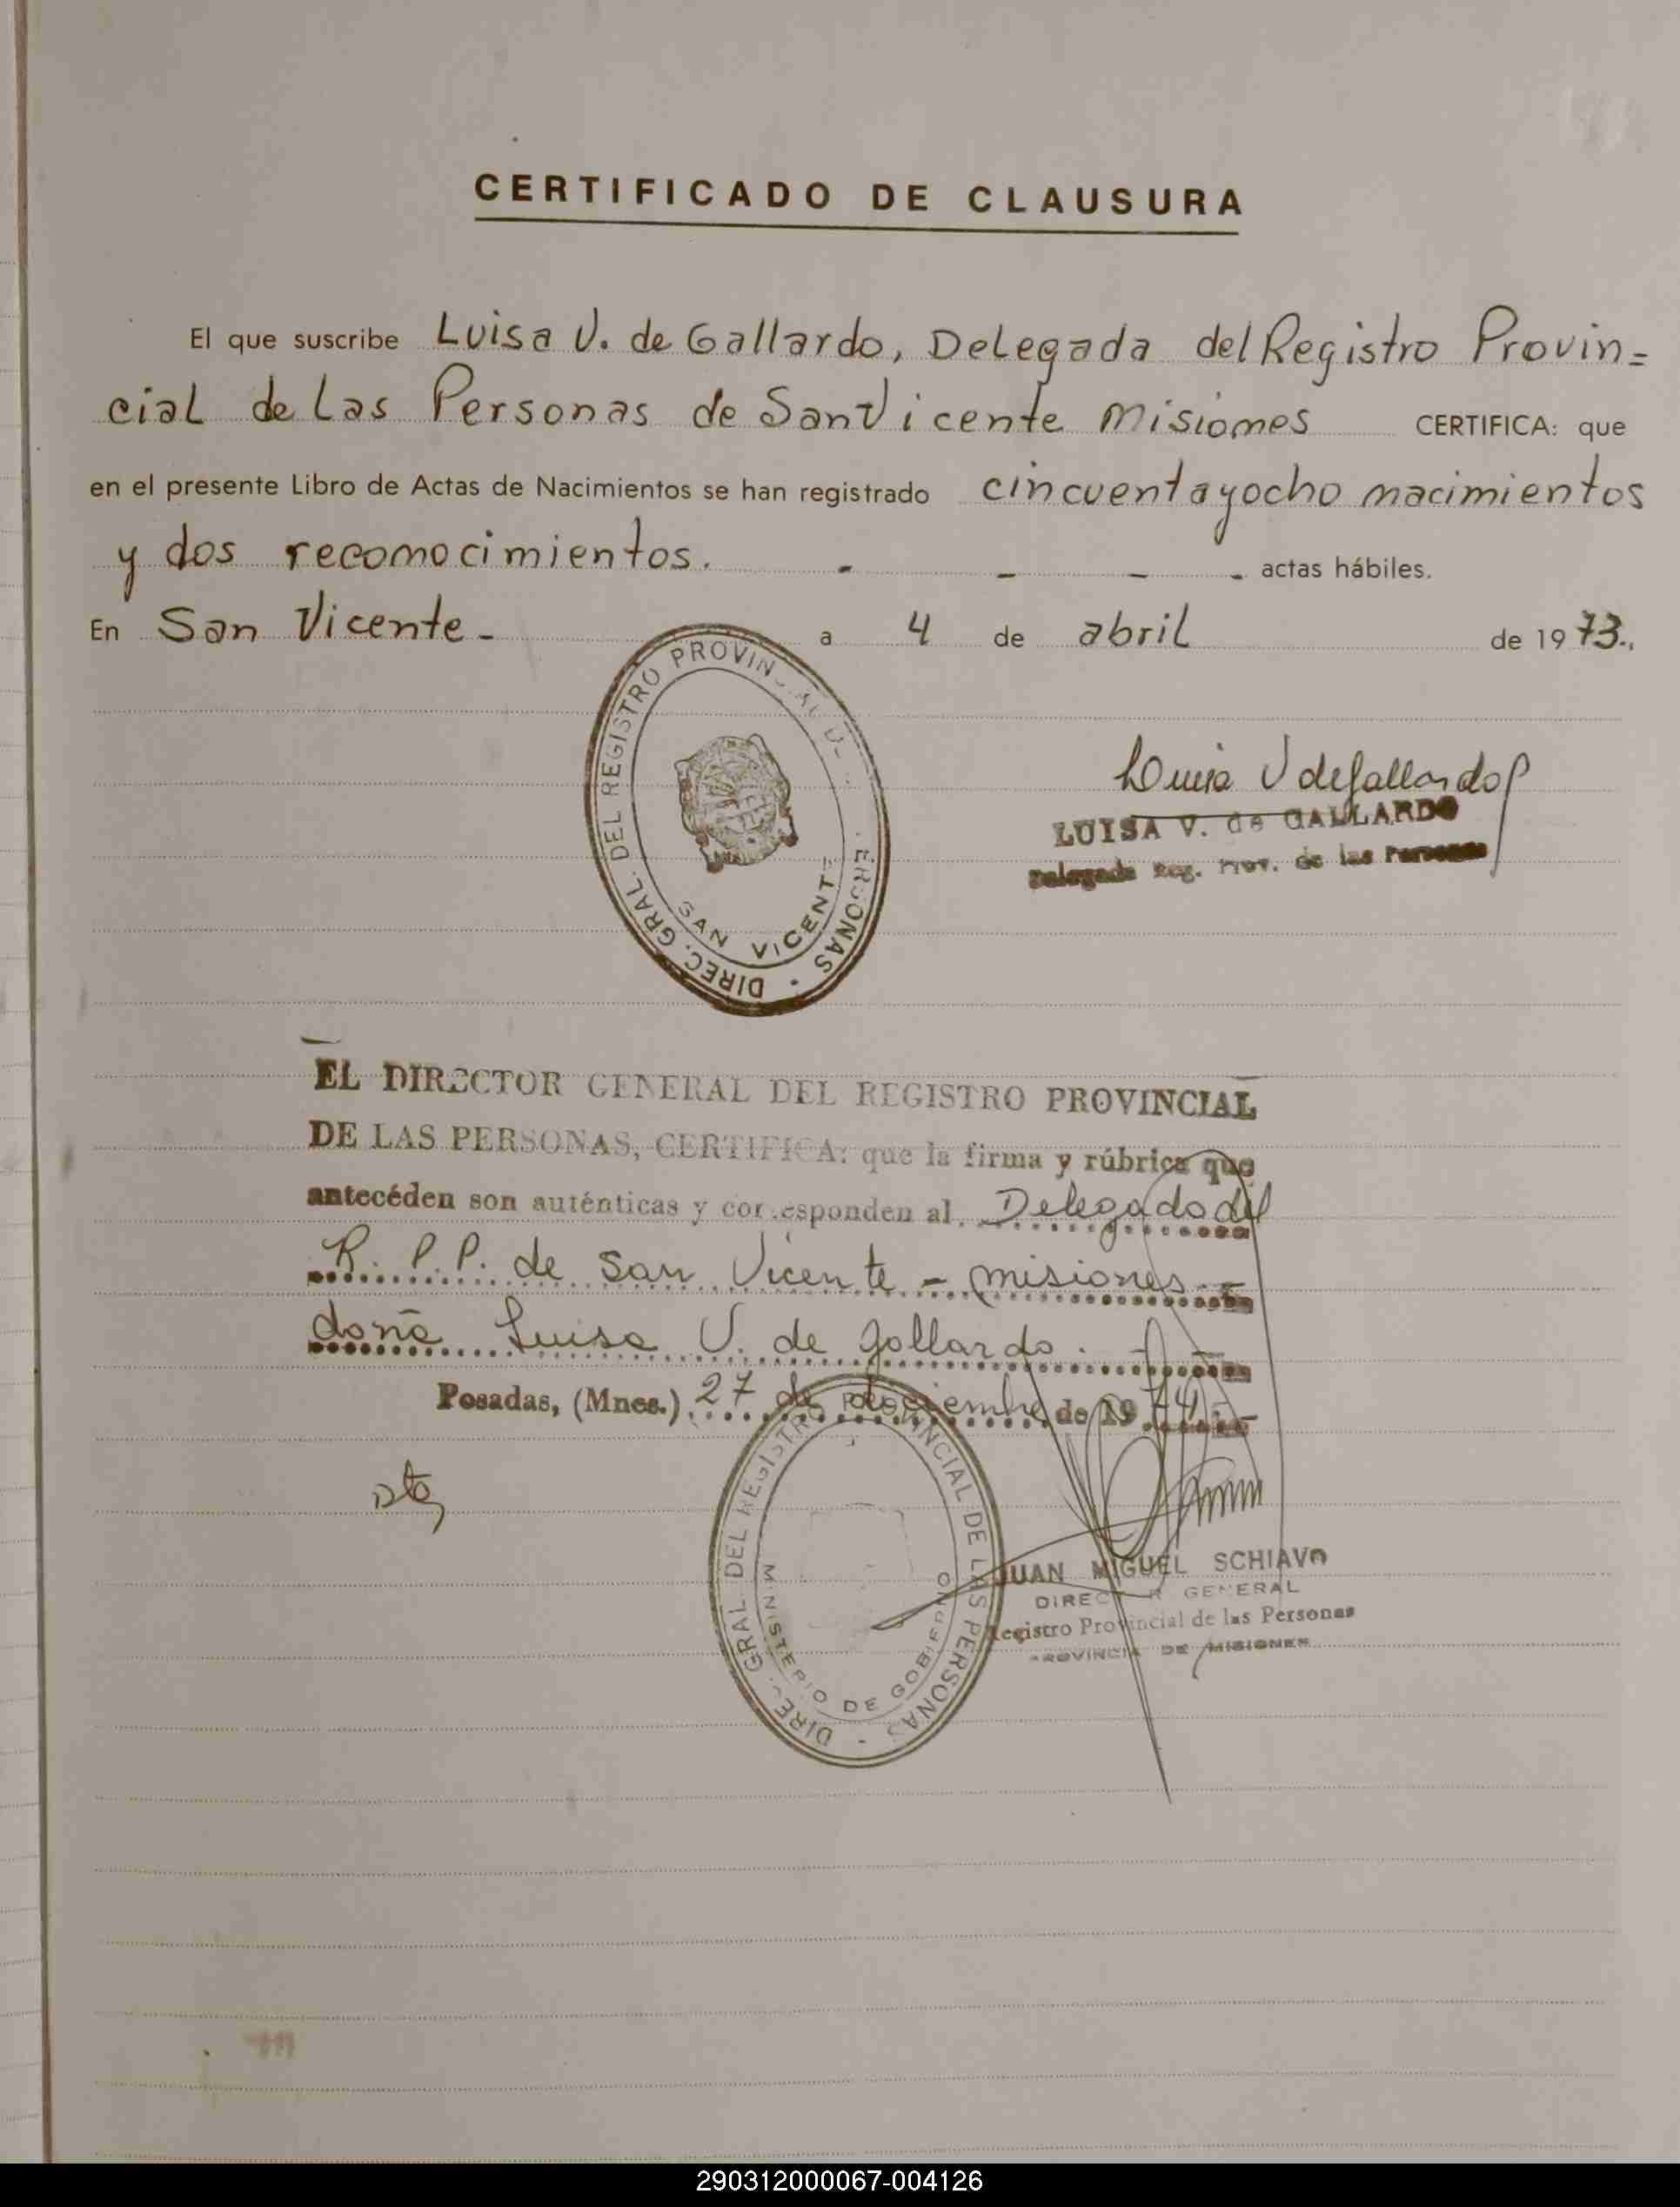 CERTIFICADO DE CLAUSURA
El que suscribe Luisa V. de Gallardo, Delegada del Registro Provin=
cial de las Personas de San Vicente Misiones CERTIFICA: que
en el presente Libro de Actas de Nacimientos se han registrado cincuenta y ocho nacimientos
y dos reconocimientos. - - - - actas hábiles.
En San Vicente - a 4 de abril de 1973.,
DIREC. GRAL. DEL REGISTRO PROVINCIAL DE PERSONAS -
SAN VICENTE
Luisa V de Gallardo
LUISA V. de GALLARDO
Delegada Reg. Prov. de las Personas
EL DIRECTOR GENERAL DEL REGISTRO PROVINCIAL
DE LAS PERSONAS, CERTIFICA: que la firma y rúbrica que
antecéden son auténticas y corresponden al Delegado del
R. P. P. de San Vicente - misiones -
doña Luisa V. de Gallardo. -
Posadas, (Mnes.) 27 de diciembre de 1974
DIREC. GRAL. DEL REGISTRO PROVINCIAL DE LAS PERSONAS -
MINISTERIO DE GOBIERNO
JUAN MIGUEL SCHIAVO
DIRECTOR GENERAL
Registro Provincial de las Personas
PROVINCIA DE MISIONES
290312000067-004126